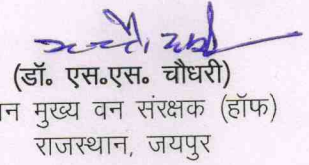 (डॉ॰ एस॰एस॰ चौधरी)
न मुख्य वन संरक्षक (हॉफ)
राजस्थान, जयपुर